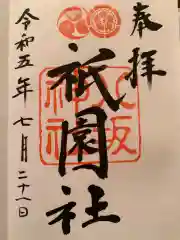 奉拝
祇園社
八坂神社
令和五年七月二十一日